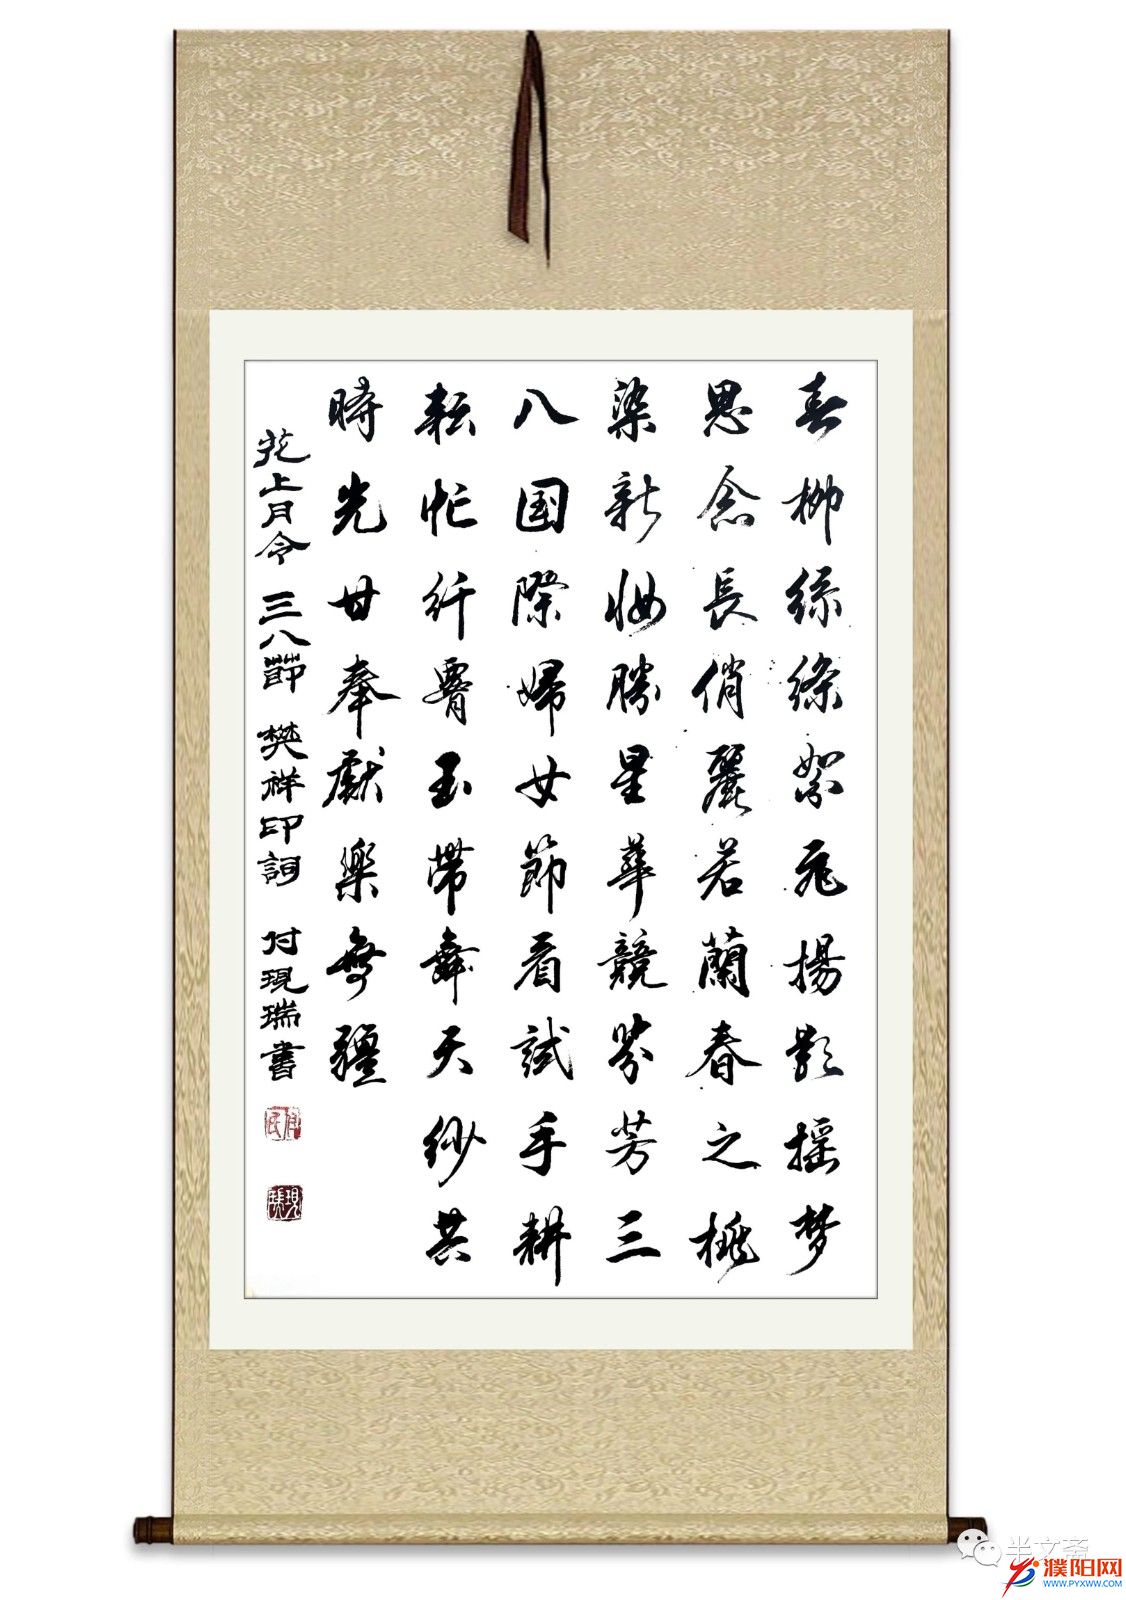 春柳絲絛絮飛揚影摇梦
思念長俏麗若蘭春之桃
染新妝勝星華競芬芳三
八国際婦女節看試手耕
耘忙纤臂玉帶舞天紗共
時光甘奉獻樂無疆
花上月令 三八節 樊祥印詞 付現瑞書
半文斋
濮阳网
WWW.PYXWW.COM